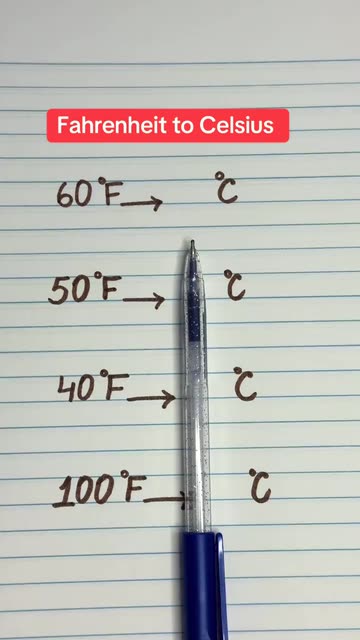 Fahrenheit to Celsius
60°F → °C
50°F → °C
40°F → °C
100°F → °C